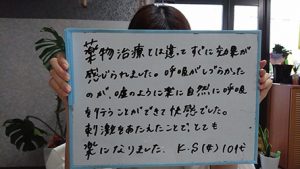 薬物治療とは違ってすぐに効果が
感じられました。呼吸がしづらかった
のが、嘘のように楽に自然に呼吸
を行うことができて快感でした。
刺激をあたえたことで、とても
楽になりました。K.S(女)10代